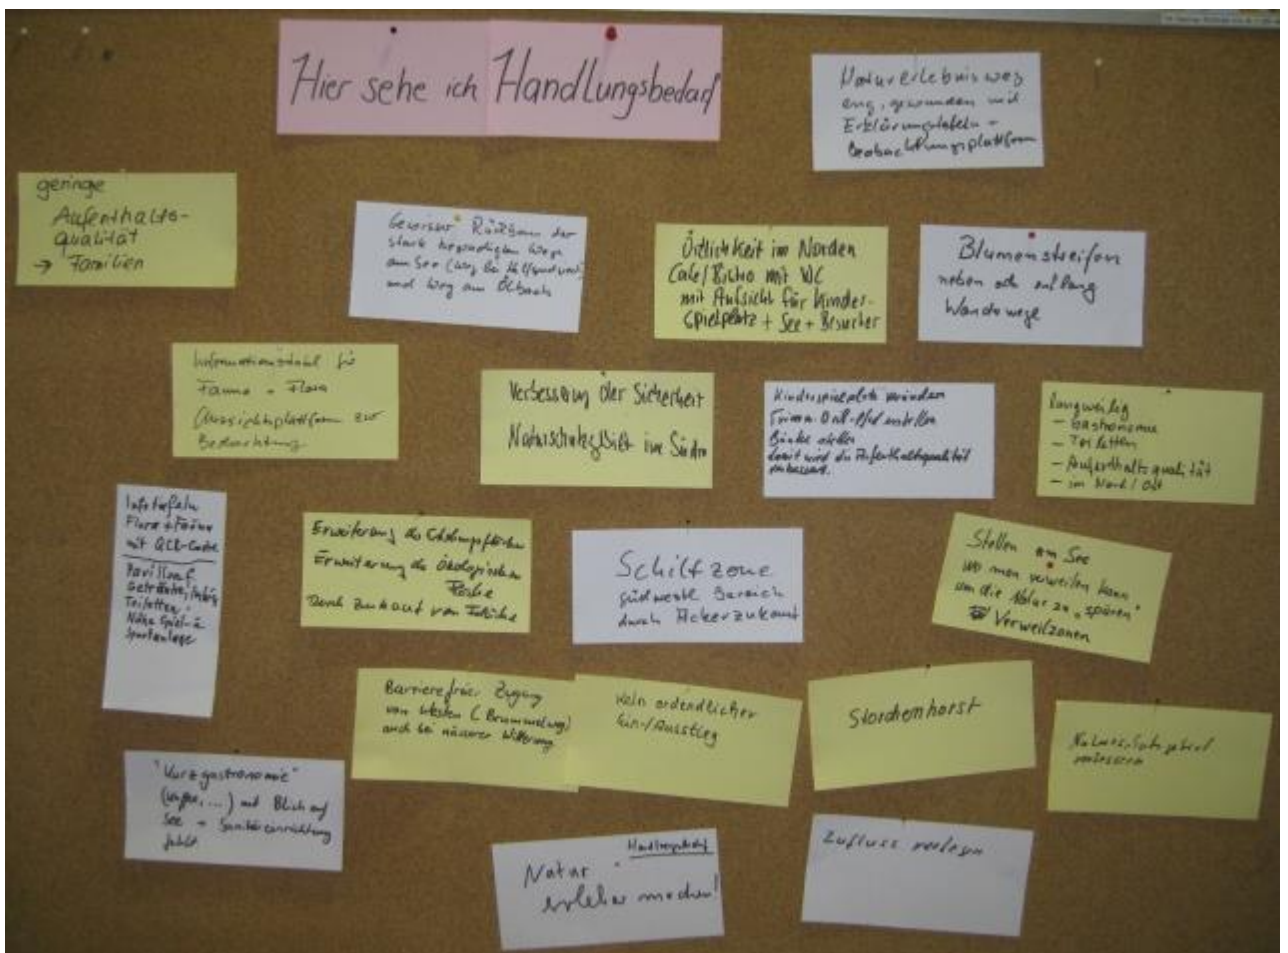 Hier sehe ich Handlungsbedarf
Naturerlebnisweg
eng, gewunden mit
Erklärungstafeln +
Beobachtungsplattform
geringe
Aufenthalts-
qualität
→ Familien
Gewisser Rückbau der
stark
am See (Weg bei
und Weg am Ölbach
Örtlichkeit im Norden
Cafe/Bistro mit WC
mit Aufsicht für Kinder-
spielplatz + See + Besucher
Blumenstreifen
neben oder entlang
Wanderwege
Informationstafel für
Fauna + Flora
Aussichtsplattform zur
Beobachtung
Verbesserung der Sicherheit
Naturschutzgebiet im Süden
Kinderspielplatz
Bänke stellen
damit wird die Aufenthaltsqualität
verbessert.
langweilig
- Gastronomie
- Toiletten
- Aufenthaltsqualität
- im Nord/Ost
Infotafeln
Flora + Fauna
mit QCR-Code
Pavillon
Getränke,
Toiletten
Nähe Spiel- u
Sportanlage
Erweiterung der
Erweiterung der ökologischen
durch Zukauf von Fläche
Schilfzone
südwestl Bereich
durch Ackerzukauf
Stellen am See
wo man verweilen kann
um die Natur zu „spüren"
Verweilzonen
Barrierefreier Zugang
von Westen (Brummelweg)
auch bei nasser Witterung
kein ordentlicher
Ein-/Ausstieg
Storchenhorst
verbessern
"Kurzgastronomie"
mit Blick auf
See + Sanitäreinrichtung
fehlt
Handlungsbedarf
Natur
erlebbar machen!
Zufluss verlegen